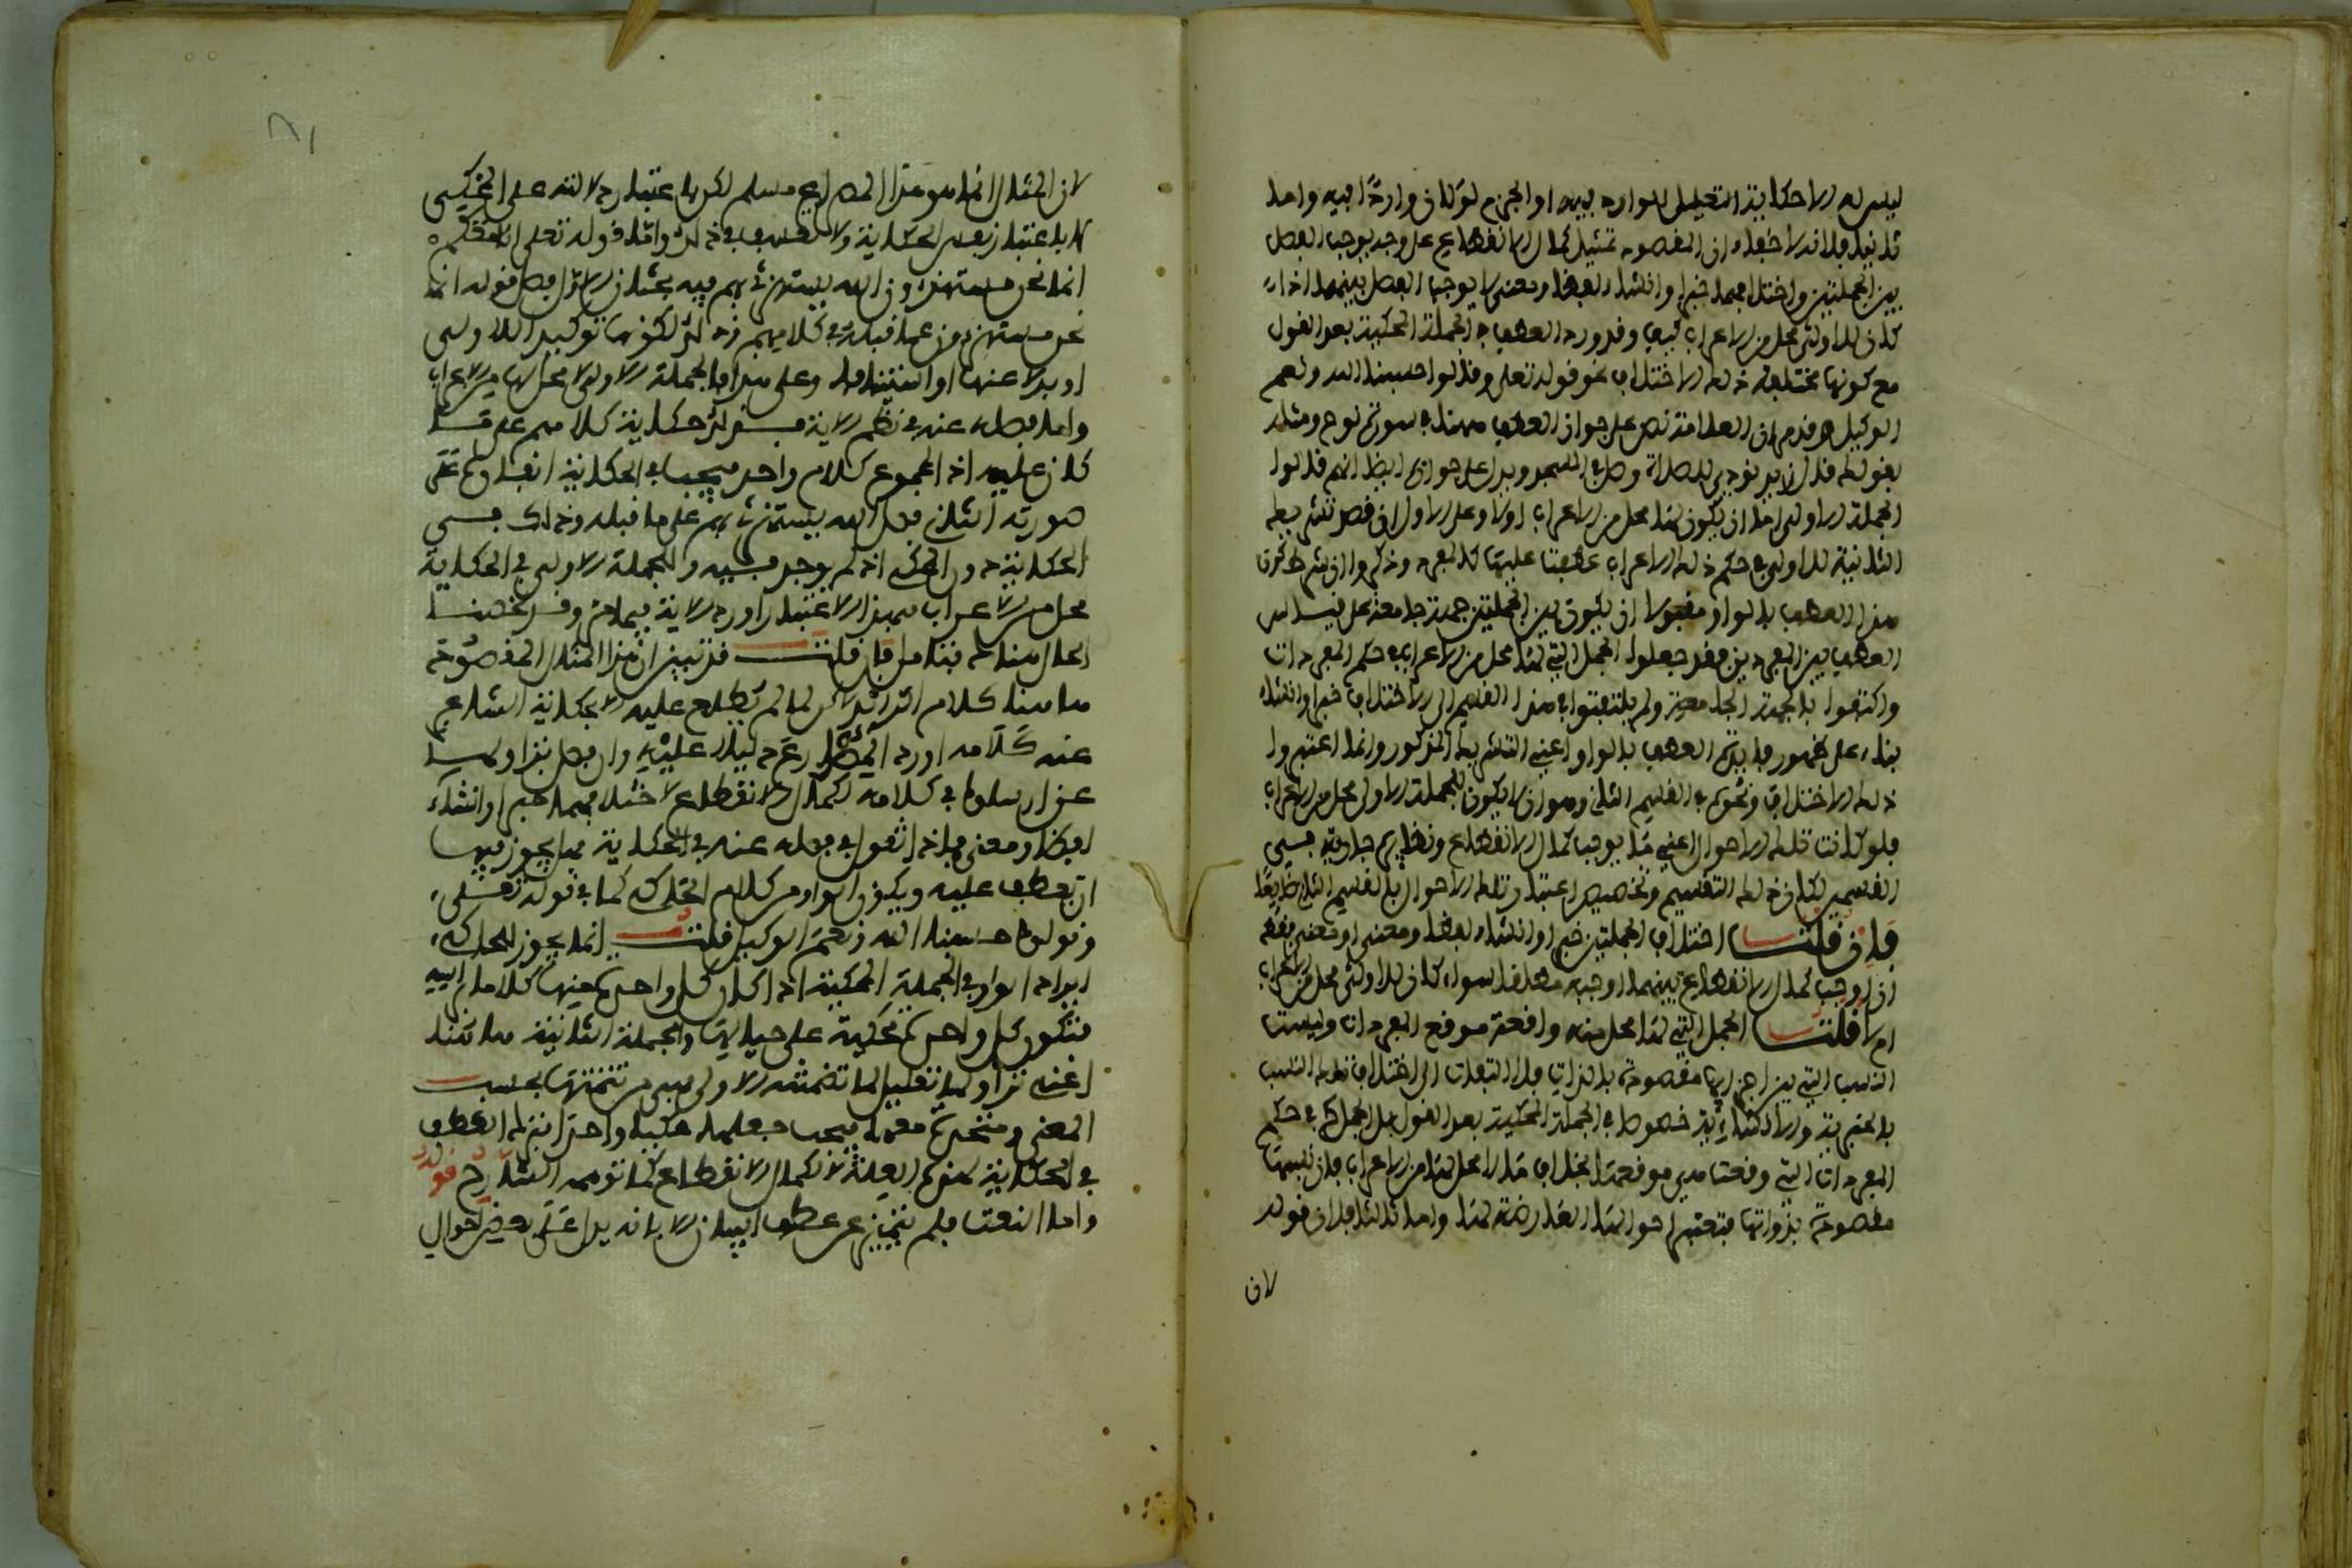 ليس له الا حكاية التعليل الوارد فيه او الجزم لو كان واردا فيه واما
ثانيا فلانه لا خفاء ان المقصود تمثيل كمال الانقطاع على وجه يوجب الفصل
بين الجملتين واختلافهما خبرا وانشاء لفظا ومعنى لا يوجب الفصل بينهما اذا
كان للاولى محل من الاعراب كيف وقد ورد العطف في الجملة المحكية بعد القول
مع كونها مختلفة ذلك الاختلاف نحو قوله تعلى وقالوا حسبنا الله ونعم
الوكيل وقد مر ان العلامة نص على جواز العطف هنا في سورة نوح ومثله
بقولك قال زيد نودي للصلاة وصل في المسجد ويدل على جوازه ايضا انهم قالوا
الجملة الاولى اما ان يكون لها محل من الاعراب اولا وعلى الاول ان قصد تشريك
الثانية للاولى في حكم ذلك الاعراب عطفت عليها كالمفرد وذكروا ان شرط كون
هذا العطف بالواو مقبولا ان يكون بين الجملتين جهة جامعة على قياس
العطف بين المفردين فقد جعلوا الجمل التي لها محل من الاعراب في حكم المفردات
واكتفوا بالجهة الجامعة ولم يلتفتوا في هذا القسم الى الاختلاف خبرا وانشاء
بناء على ظهور فايدة العطف بالواو اعني التشريك المذكور وانما اعتبروا
ذلك الاختلاف ونحوه في القسم الثاني وهو ان لا يكون للجملة الاولى محل من الاعراب
فلو كانت تلك الاحوال اعني ما يوجب كمال الانقطاع ونظايره جارية في
القسمين لكان ذلك التقسيم وتخصيص اعتبار تلك الاحوال بالقسم الثاني ضايعا
فان قلت اختلاف الجملتين خبرا وانشاء لفظا ومعنى او معنى فقط
ان اوجب كمال الانقطاع بينهما اوجبه مطلقا سواء كان للاولى محل من الاعراب
ام لا قلت الجمل التي لها محل منه واقعة موقع المفردات وليست
النسب التي بين اجزايها مقصودة بالذات فلا التفات الى اختلاف تلك النسب
بالخبرية والانشائية خصوصا في الجملة المحكية بعد القول بل الجمل في حكم
المفردات التي وقعت هي موقعها بخلاف ما لا محل لها من الاعراب فان نسبها
مقصودة بذواتها فتعتبر احوالها العارضة لها واما ثالثا فلان قوله
لان
لان المثال انما هو هذا المصراع مسلم لكن لا باعتبار دلالته على الحكي
بل باعتبار نفس الحكاية ولا تعسف في ذلك واما قوله تعلى انا معكم
انما نحن مستهزءون الله يستهزئ بهم فيه مثلان الاول فصل قوله انما
نحن مستهزءون عما قبله في كلامهم وذلك لكونها توكيدا للاولى
او بدلا عنها او استينافا وعلى هذا فالجملة الاولى لا محل لها من الاعراب
واما فصله عنه في نظم الاية فبذلك حكاية كلامهم على ما
كان عليه اذ المجموع كلام واحد فيجب في الحكاية ابقاؤه على
صورته الثاني فصل الله يستهزئ بهم على ما قبله وذلك في
الحكاية دون المحكي اذ لم يوجد فيه وللجملة الاولى في الحكاية
محل من الاعراب فبهذا الاعتبار اورد الاية فيما مر وقد تحققنا
الحال هناك فتامل فان قلت قد تبين ان هذا المثال المقصود
ها هنا كلام الرائد لكن لما لم نطلع عليه الا بحكاية الشاعر
عنه كلامه اورد المصراع دليلا عليه وان فصل نزاولها
عن ارسوا في كلامه لكمال الانقطاع لاختلافهما خبرا وانشاء
لفظا ومعنى فماذا تقول في فصله عنه في الحكاية مما يجوز فيها
ان تعطف عليه ويكون الواو من كلام الحاكي كما في قوله تعلى
وقالوا حسبنا الله ونعم الوكيل قلت انما يجوز للحاكي
ايراد الواو في الجملة المحكية اذا كان كل واحد منها كلاما براسه
فتكون كل واحدة محكية على حيالها والجملة الثانية ها هنا
اعني نزاولها تعليل لما تضمنته الاولى فهي من تتمتها بحسب
المعنى ومتحدة معها فيجب جعلهما حكيا واحدا بترك العطف
في الحكاية لهذه العلة لا لكمال الانقطاع كما توهمه الشارح قوله
واما النعت فلم يتميز عن عطف البيان الا بانه يدل على بعض احوال